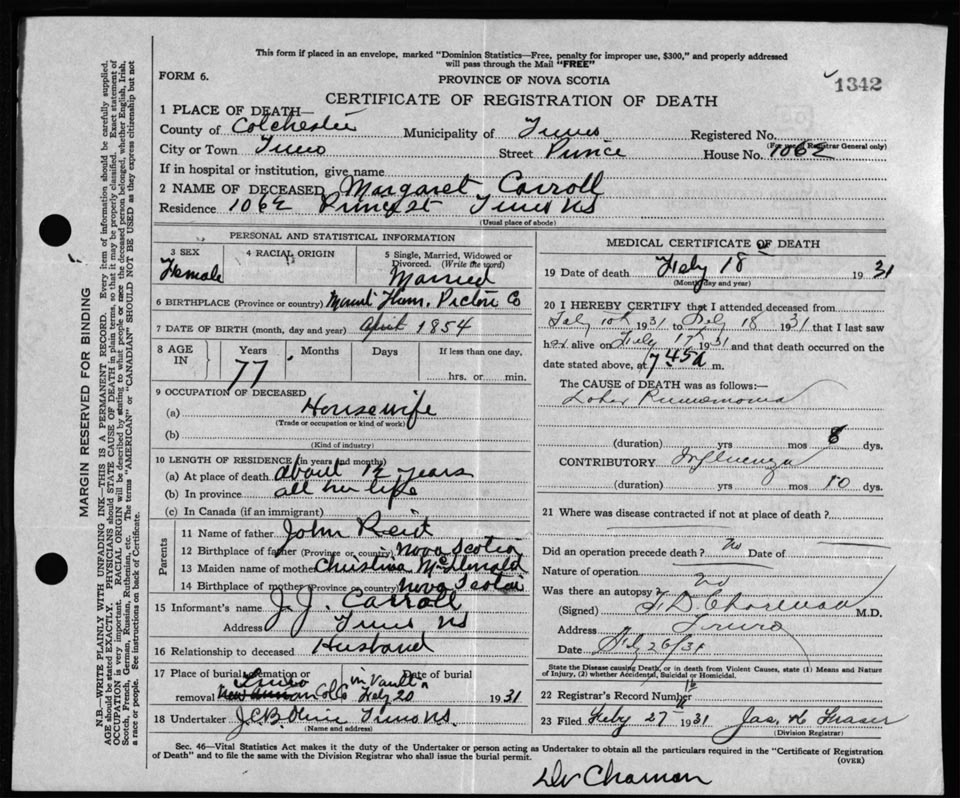 This form if placed in an envelope, marked "Dominion Statistics—Free, penalty for improper use, $300," and properly addressed
will pass through the Mail "FREE"
FORM 6.
PROVINCE OF NOVA SCOTIA
1342
CERTIFICATE OF REGISTRATION OF DEATH
1 PLACE OF DEATH—
County of Colchester Municipality of Truro Registered No.
(For use of Registrar General only)
City or Town Truro Street Prince House No. 106½
If in hospital or institution, give name
2 NAME OF DECEASED Margaret Carroll
Residence 106½ Prince st Truro NS
(Usual place of abode)
PERSONAL AND STATISTICAL INFORMATION
3 SEX Female
4 RACIAL ORIGIN
5 Single, Married, Widowed or Divorced. (Write the word) Married
6 BIRTHPLACE (Province or country) Mount Thom, Pictou Co
7 DATE OF BIRTH (month, day and year) April 1854
8 AGE IN Years 77 Months Days If less than one day.
hrs. or min.
9 OCCUPATION OF DECEASED
(a) Housewife
(Trade or occupation or kind of work)
(b)
(Kind of industry)
10 LENGTH OF RESIDENCE (in years and months)
(a) At place of death about 12 years
(b) In province all her life
(c) In Canada (if an immigrant)
Parents
11 Name of father John Reid
12 Birthplace of father (Province or country) Nova Scotia
13 Maiden name of mother Christina McDonald
14 Birthplace of mother (Province or country) Nova Scotia
15 Informant's name J. J. Carroll
Address Truro NS
16 Relationship to deceased Husband
17 Place of burial, cremation or removal Truro Col Co in Vault Date of burial Feby 20 1931
18 Undertaker Truro NS.
(Name and address)
MEDICAL CERTIFICATE OF DEATH
19 Date of death Feby 18 1931
(Month, day and year)
20 I HEREBY CERTIFY that I attended deceased from
Feby 10th 1931 to Feby 18 1931 that I last saw
her alive on Feby 17 1931 and that death occurred on the
date stated above, at 7 45 a m.
The CAUSE of DEATH was as follows:—
Lobar Pneumonia
(duration) yrs mos 8 dys.
CONTRIBUTORY Influenza
(duration) yrs mos 10 dys.
21 Where was disease contracted if not at place of death?
Did an operation precede death? No Date of
Nature of operation
Was there an autopsy? no
(Signed) M.D.
Address Truro
Date Feby 26/31
State the Disease causing Death, or in death from Violent Causes, state (1) Means and Nature
of Injury, (2) whether Accidental, Suicidal or Homicidal.
22 Registrar's Record Number
23 Filed Feby 27 1931 Jas. K Fraser
(Division Registrar)
Sec. 46—Vital Statistics Act makes it the duty of the Undertaker or person acting as Undertaker to obtain all the particulars required in the "Certificate of Registration
of Death" and to file the same with the Division Registrar who shall issue the burial permit.
(OVER)
MARGIN RESERVED FOR BINDING
N.B.—WRITE PLAINLY WITH UNFADING INK—THIS IS A PERMANENT RECORD. Every item of information should be carefully supplied.
AGE should be stated EXACTLY. PHYSICIANS should STATE CAUSE OF DEATH in plain terms, so that it may be properly classified. Exact statement of
OCCUPATION is very important. RACIAL ORIGIN will be described by stating to what people or race the deceased person belonged, whether English, Irish,
Scotch, French, German, Russian, Ruthenian, etc. The terms "AMERICAN" or "CANADIAN" SHOULD NOT BE USED as they express citizenship but not
a race or people. See instructions on back of Certificate.